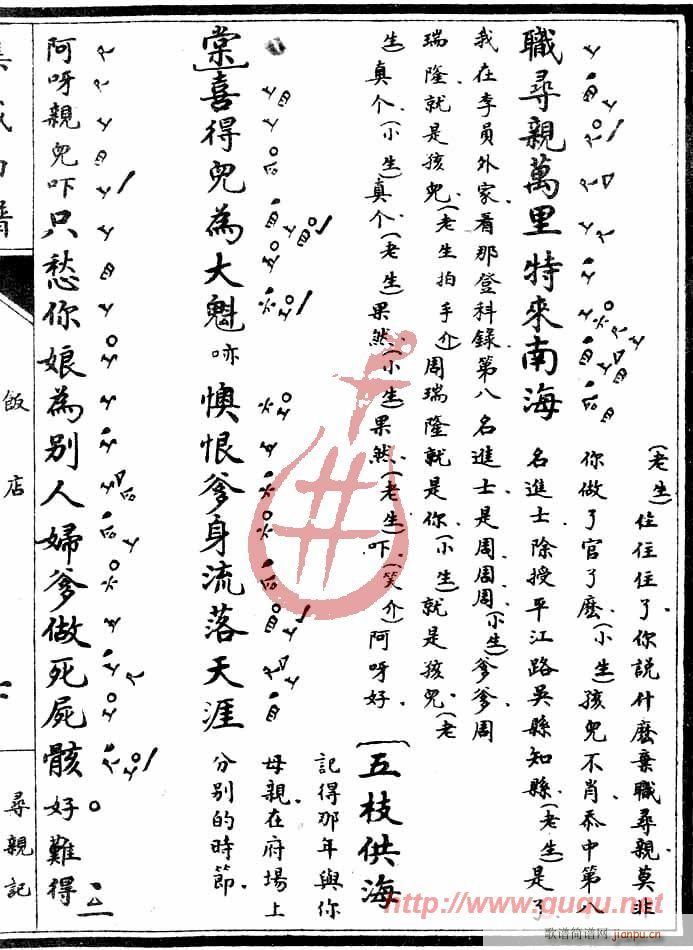 職尋親萬里特來南海
(老生)住住住了你説什麽棄職尋親莫非
你做了官了麽(小生)孩兒不肖忝中第八
名進士除授平江路吳縣知縣(老生)是了
我在李員外家看那登科錄第八名進士是周周周(小生)爹爹周
瑞隆就是孩兒(老生拍手介)周瑞隆就是你(小生)就是孩兒(老
生)真个(小生)真个(老生)果然(小生)果然(老生)吓(笑介)阿呀好
〔五枝供海
棠〕喜得兒為大魁
記得那年與你
母親在府場上
分別的時節
㖡懊恨爹身流落天涯
阿呀親兒吓只愁你娘為别人婦爹做死屍骸好難得
飯店
尋親記
http://www.guqu.net
歌谱简谱网
jianpu.cn